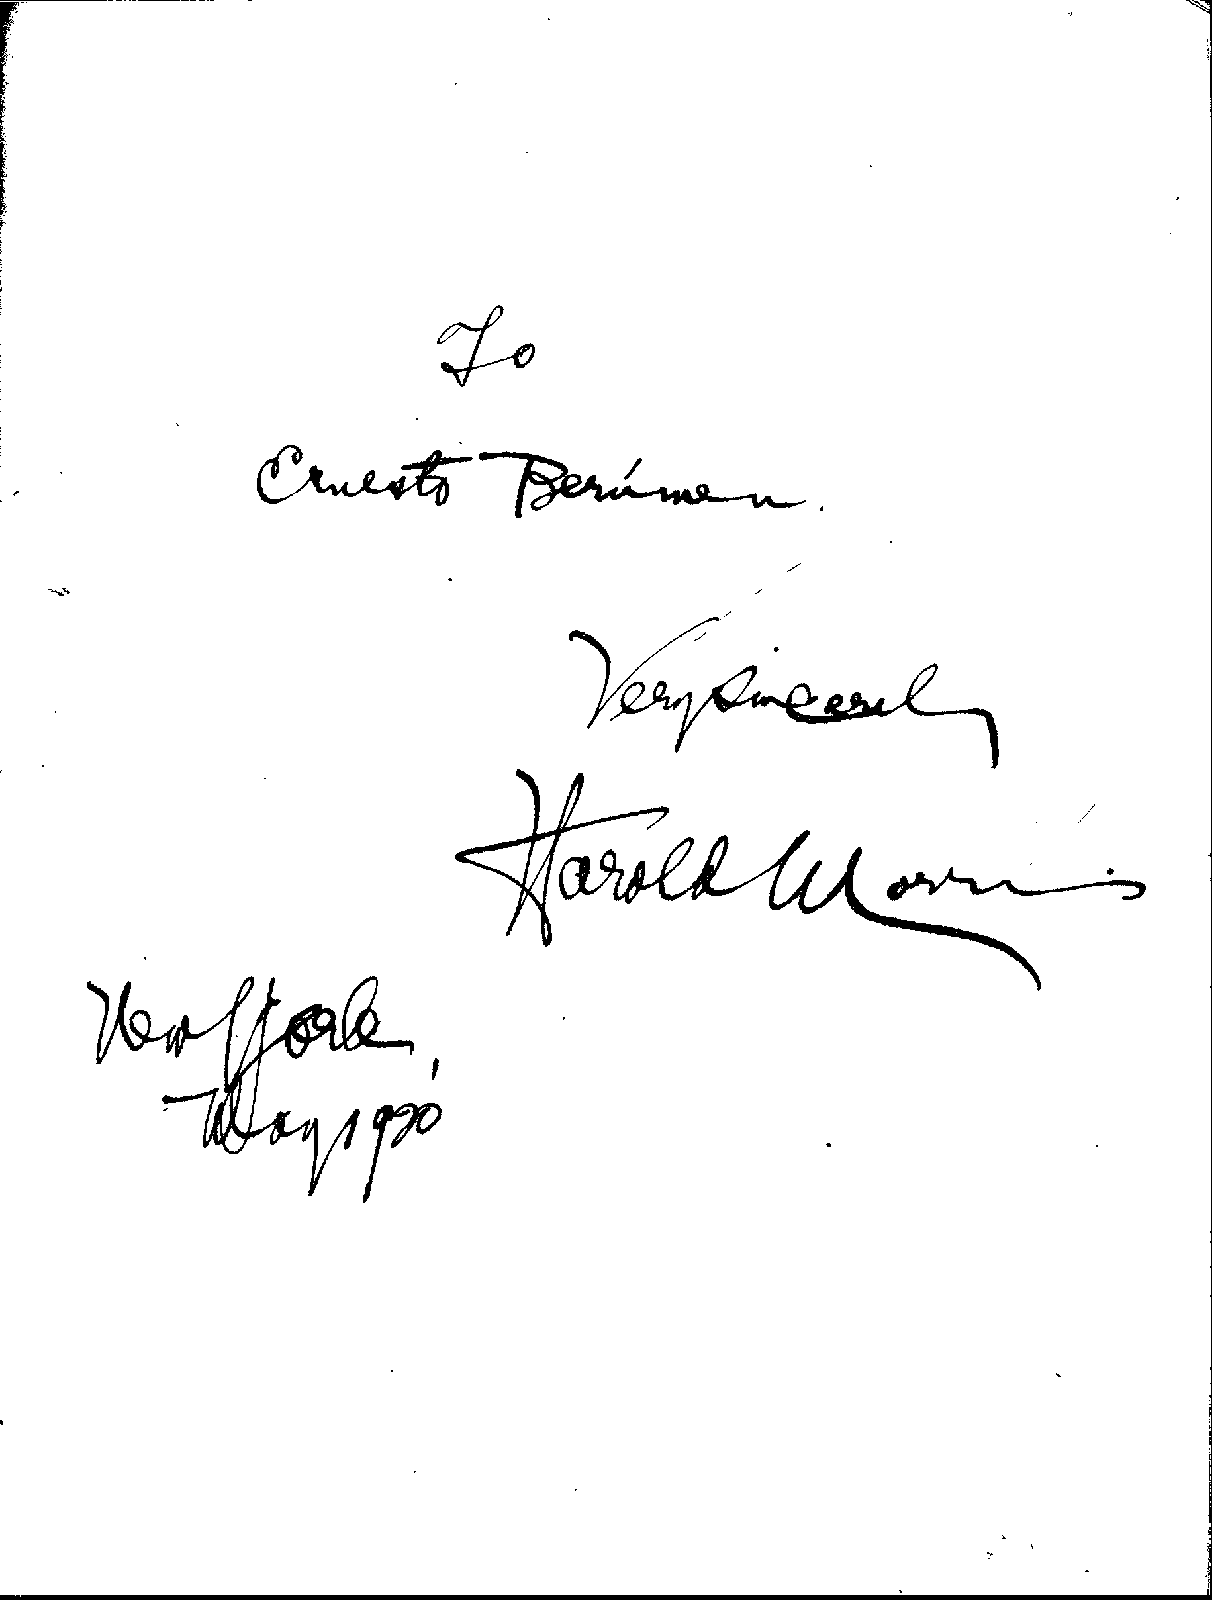 To
Ernesto Berúmen.
Very sincerely
Harold Morris
New York,
May 1920